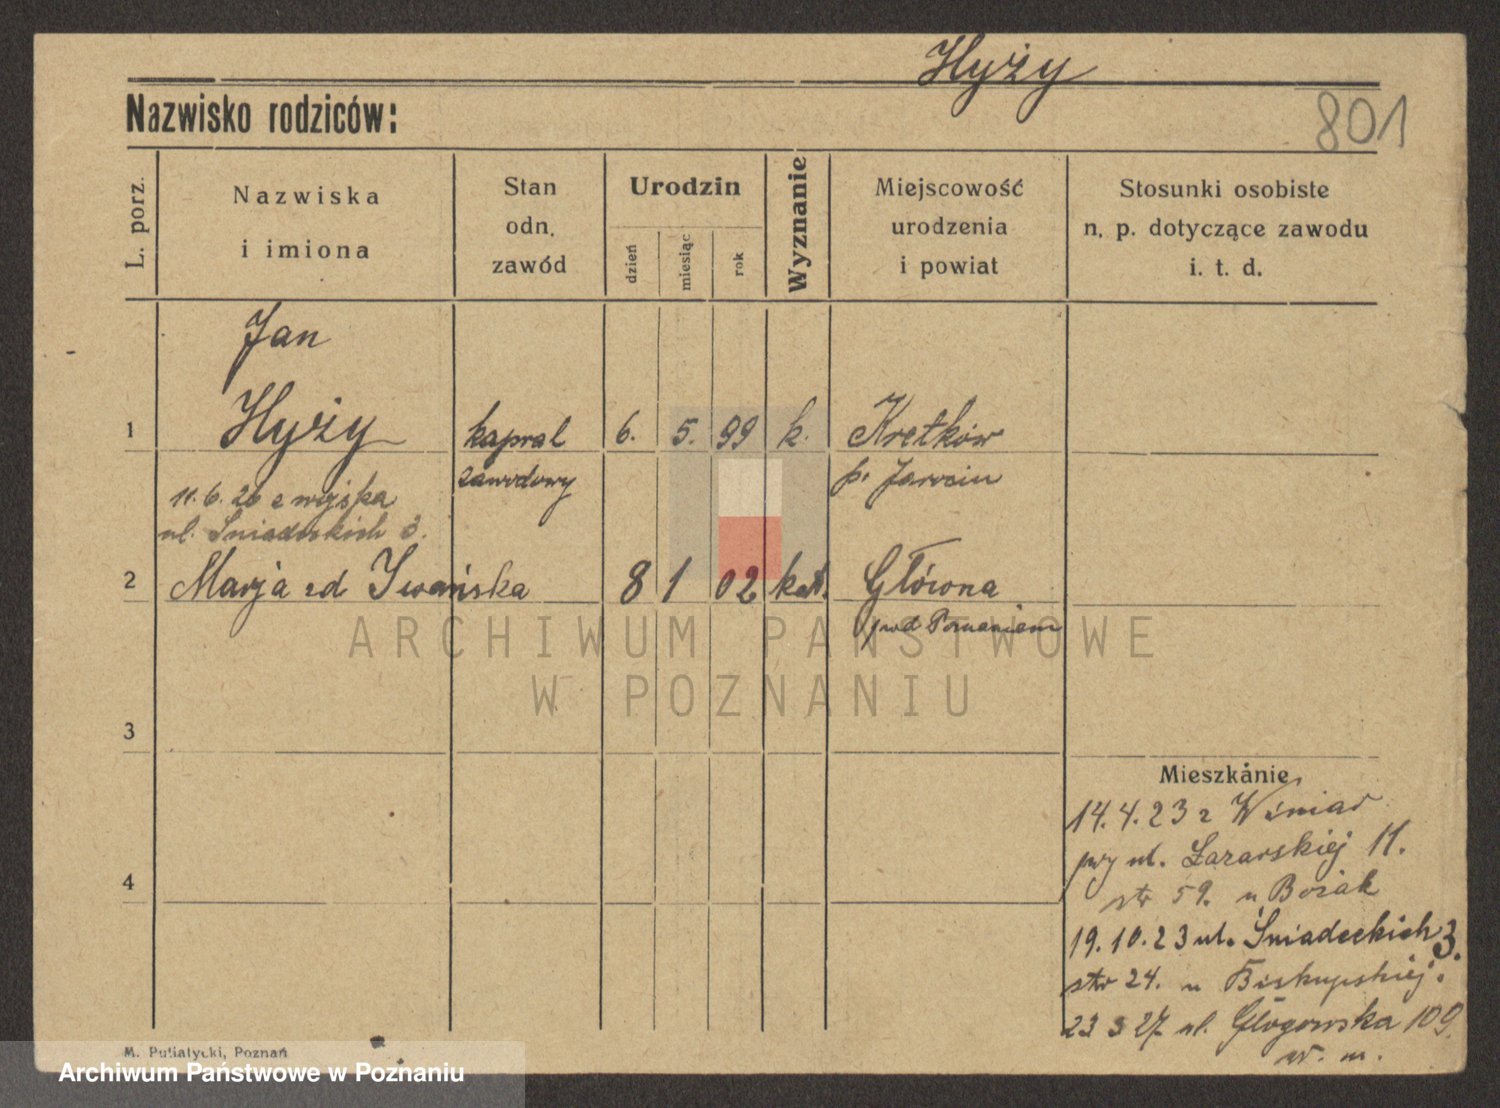 Hyży
Nazwisko rodziców:
801
L. porz.
Nazwiska
i imiona
Stan
odn.
zawód
Urodzin
dzień
miesiąc
rok
Wyznanie
Miejscowość
urodzenia
i powiat
Stosunki osobiste
n. p. dotyczące zawodu
i. t. d.
Jan
1 Hyży kapral 6. 5. 99 k. Kretków
zawodowy p. Jarocin
11.6.26 z wojska
ul. Śniadeckich 3.
2 Marja zd Iwańska 8 1 02 kat. Główna
pod Poznaniem
ARCHIWUM PAŃSTWOWE
W POZNANIU
3
Mieszkanie
14.4.23 z Winiar
przy ul. Łazarskiej 11.
str 59. u Bożak
4
19.10.23 ul. Śniadeckich 3.
str 24. u Biskupskiej.
23 3 27 ul. Głogowska 109
w. m.
M. Putiatycki, Poznań
Archiwum Państwowe w Poznaniu